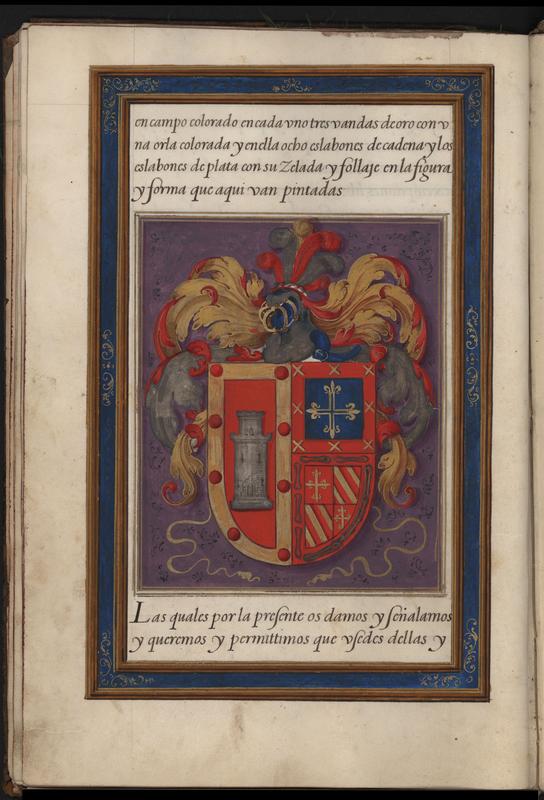 en campo colorado en cada vno tres vandas de oro con v
na orla colorada y en ella ocho eslabones de cadena y los
eslabones de plata con su Zelada y follaje en la figura
y forma que aqui van pintadas
Las quales por la presente os damos y señalamos
y queremos y permittimos que vsedes dellas y